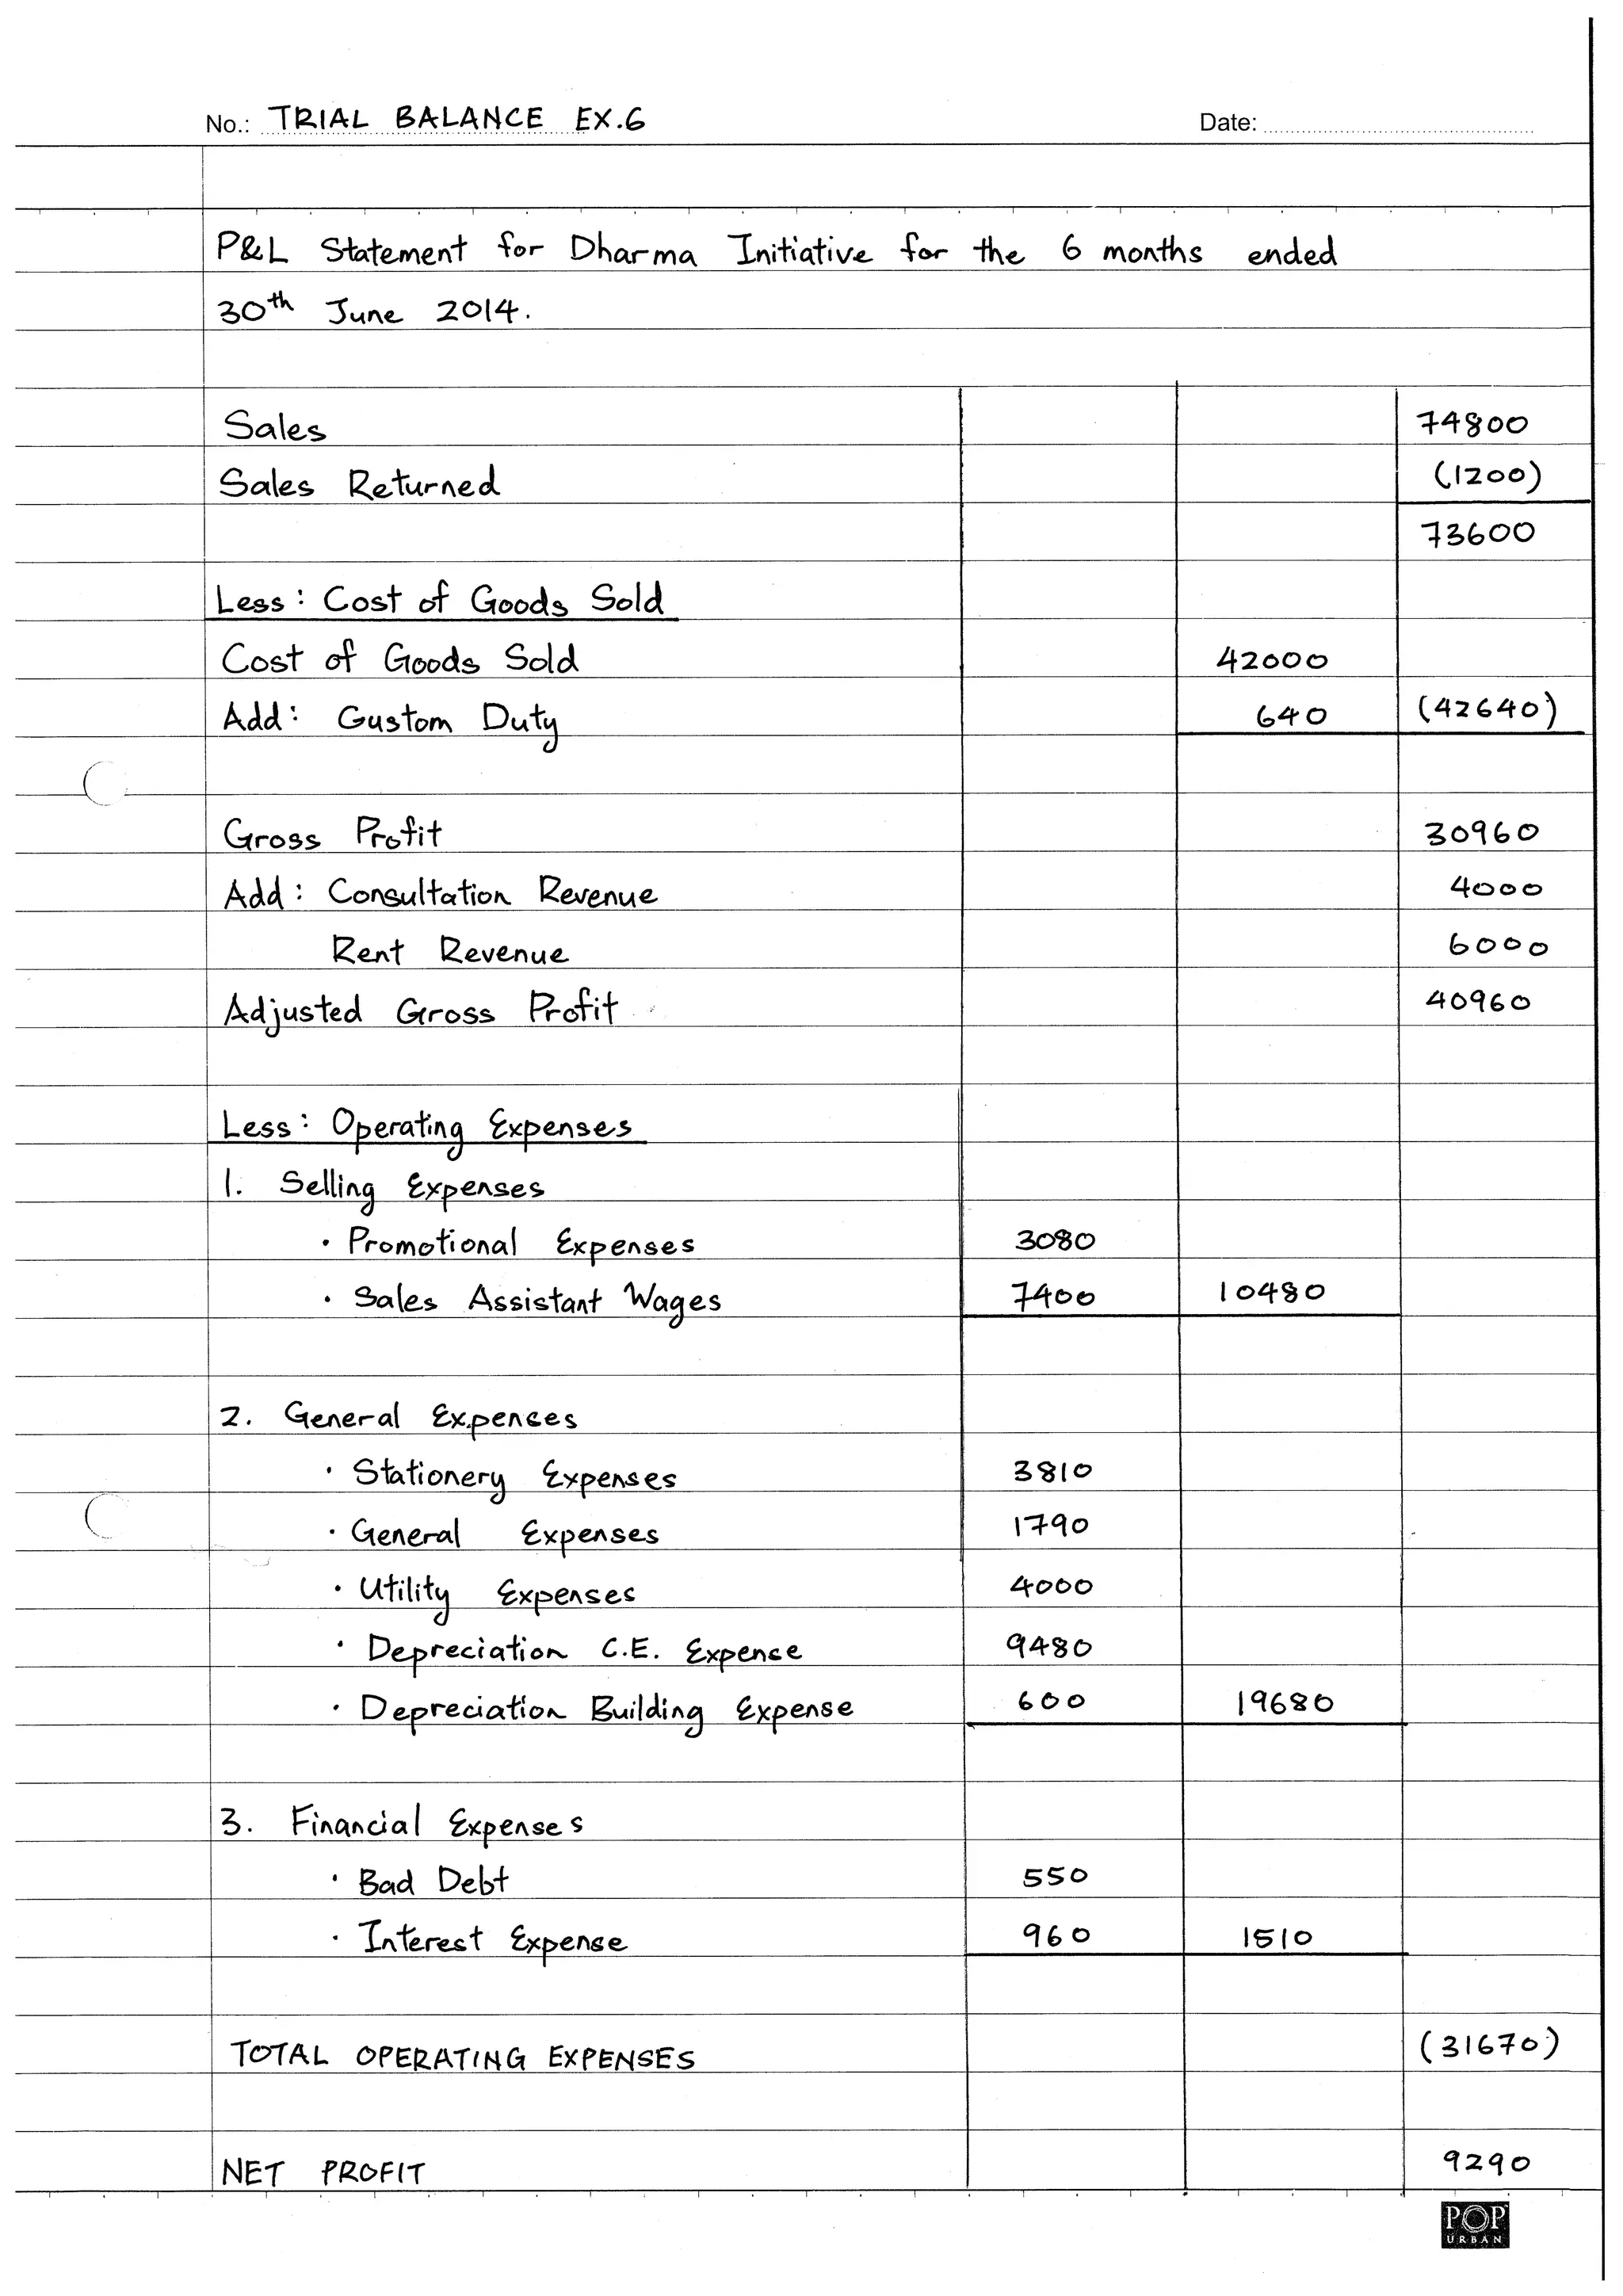 No.: TRIAL BALANCE EX.6 Date:
P&L Statement for Dharma Initiative for the 6 months ended
30th June 2014.
Sales 74800
Sales Returned (1200)
73600
Less: Cost of Goods Sold
Cost of Goods Sold 42000
Add: Custom Duty 640 (42640)
Gross Profit 30960
Add: Consultation Revenue 4000
Rent Revenue 6000
Adjusted Gross Profit 40960
Less: Operating Expenses
1. Selling Expenses
• Promotional Expenses 3080
• Sales Assistant Wages 7400 10480
2. General Expenses
• Stationery Expenses 3810
• General Expenses 1790
• Utility Expenses 4000
• Depreciation C.E. Expense 9480
• Depreciation Building Expense 600 19680
3. Financial Expenses
• Bad Debt 550
• Interest Expense 960 1510
TOTAL OPERATING EXPENSES (31670)
NET PROFIT 9290
POP
URBAN